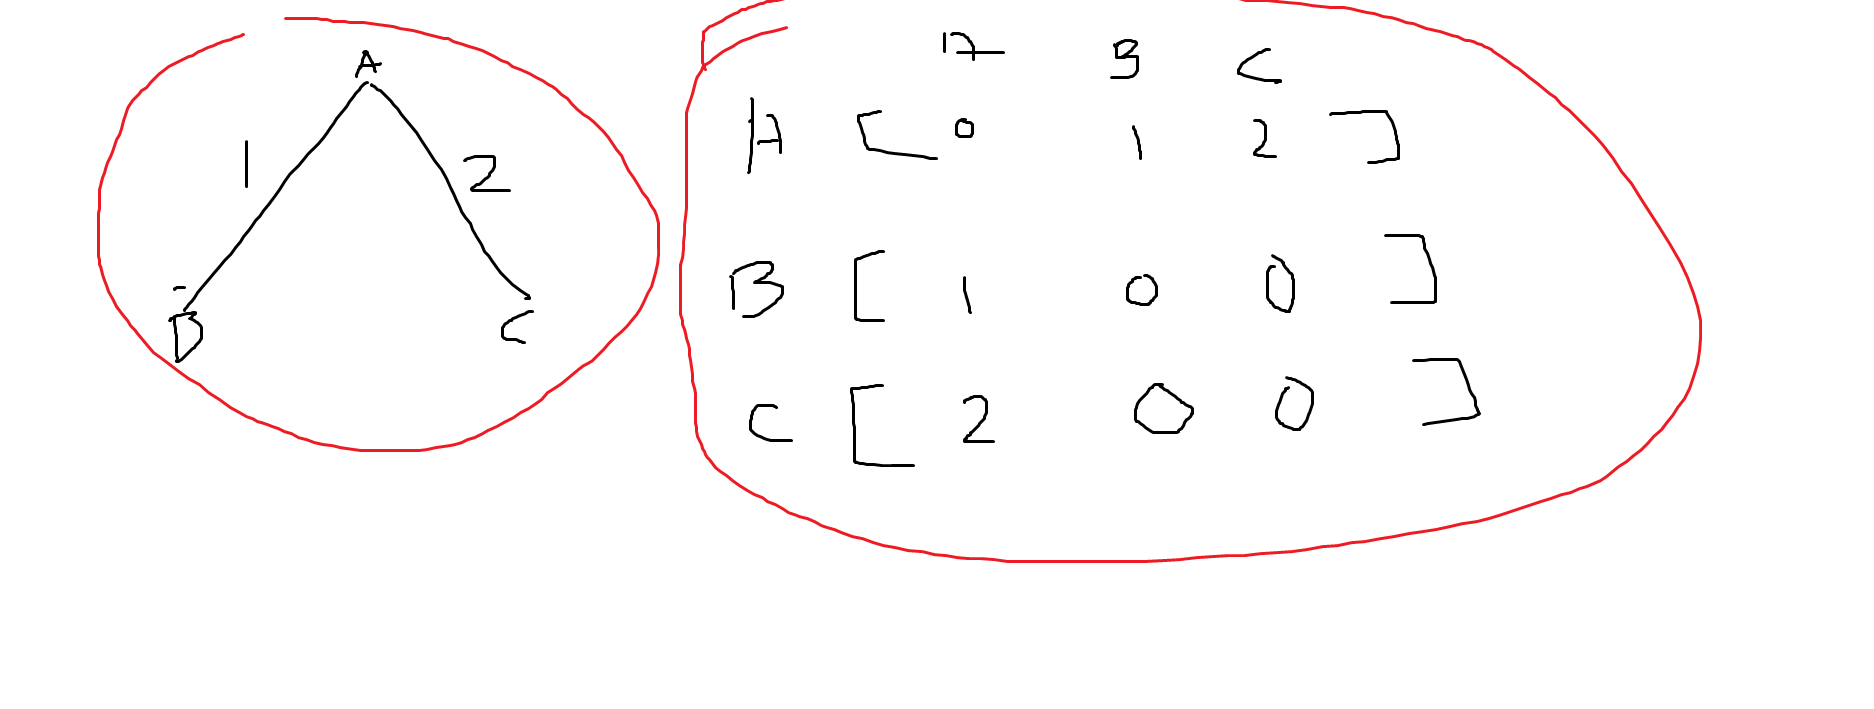 A
1 2
B C
A B C
A [ 0 1 2 ]
B [ 1 0 0 ]
C [ 2 0 0 ]